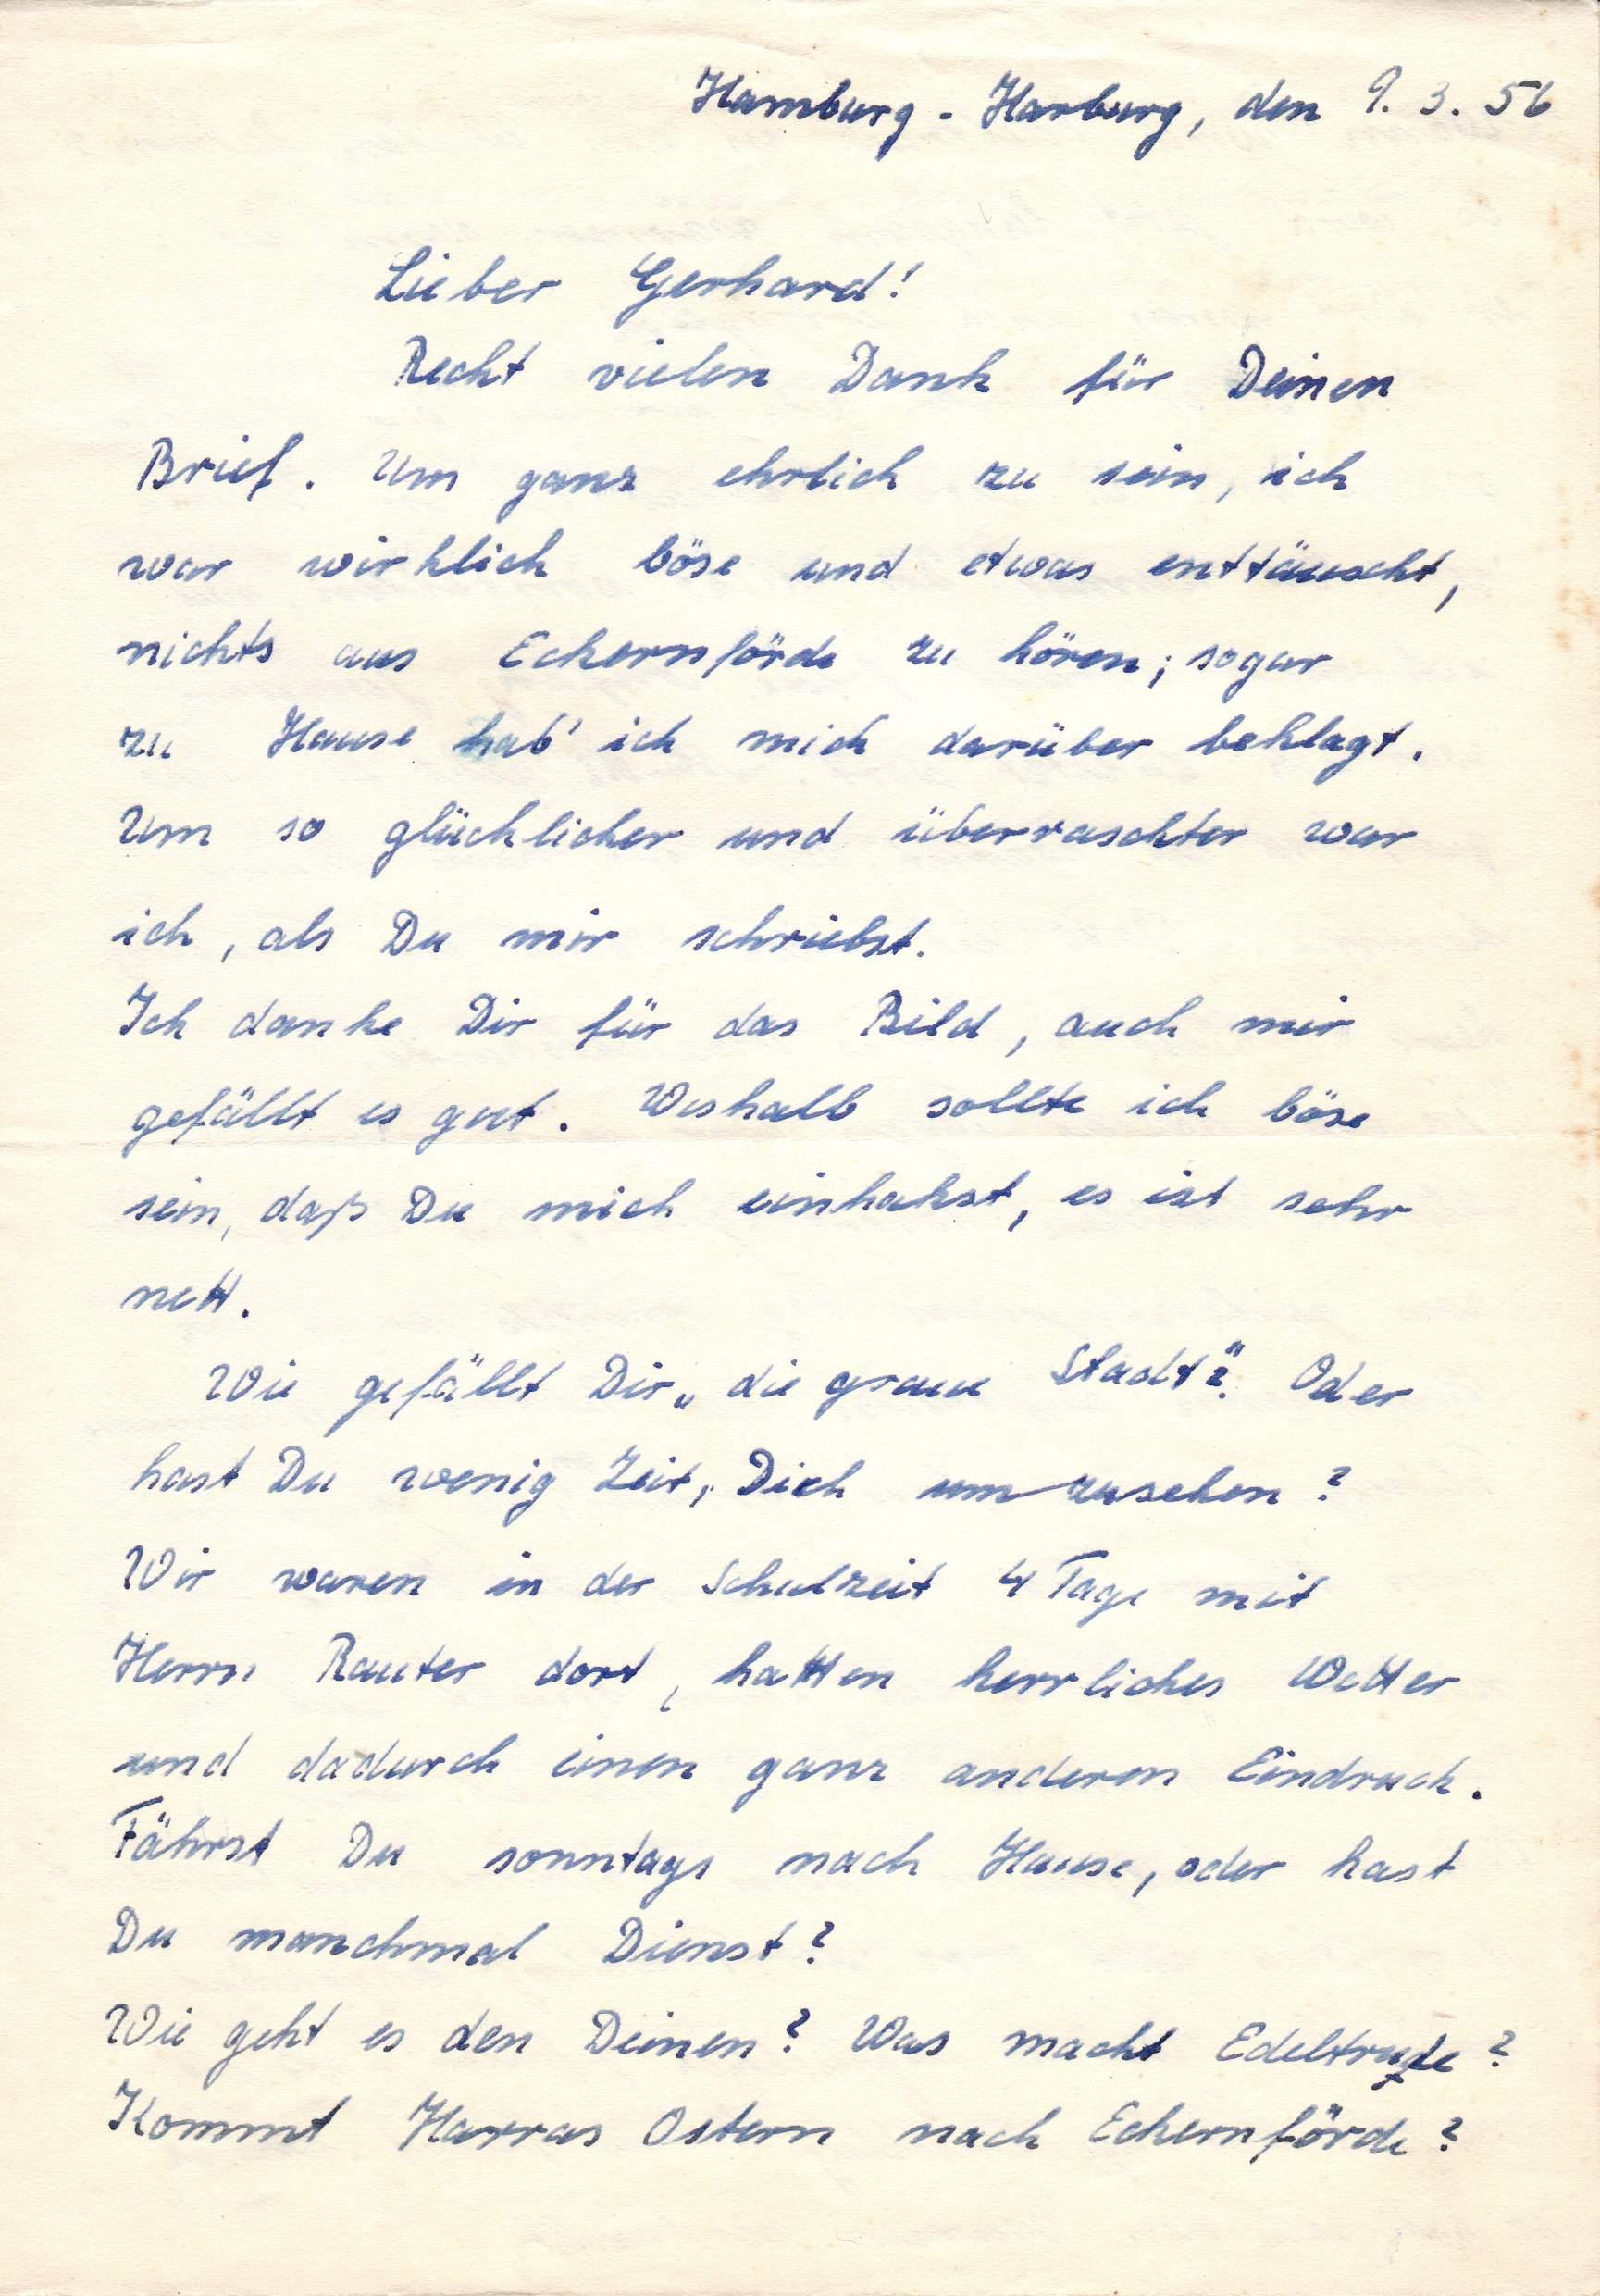 Hamburg - Harburg, den 9. 3. 56
Lieber Gerhard!
Recht vielen Dank für Deinen
Brief. Um ganz ehrlich zu sein, ich
war wirklich böse und etwas enttäuscht,
nichts aus Eckernförde zu hören; sogar
zu Hause hab' ich mich darüber beklagt.
Um so glücklicher und überraschter war
ich, als Du mir schriebst.
Ich danke Dir für das Bild, auch mir
gefällt es gut. Weshalb sollte ich böse
sein, daß Du mich einhakst, es ist sehr
nett.
Wie gefällt Dir „die graue Stadt“? Oder
hast Du wenig Zeit, Dich umzusehen?
Wir waren in der Schulzeit 4 Tage mit
Herrn Rauter dort, hatten herrliches Wetter
und dadurch einen ganz anderen Eindruck.
Fährst Du sonntags nach Hause, oder hast
Du manchmal Dienst?
Wie geht es den Deinen? Was macht Edeltrude?
Kommt Harras Ostern nach Eckernförde?